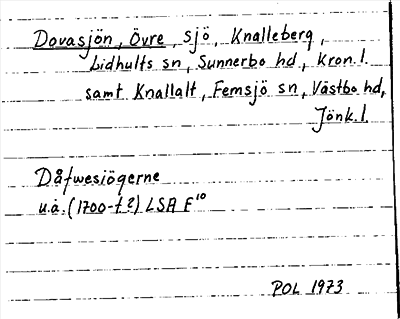 Dovasjön, Övre, sjö, Knalleberg,
Lidhults sn, Sunnerbo hd, Kron. l.
samt Knallalt, Femsjö sn, Västbo hd,
Jönk. l.
Dåfwesiögerne
u.å. (1700-t?) LSA F¹⁰
POL 1973